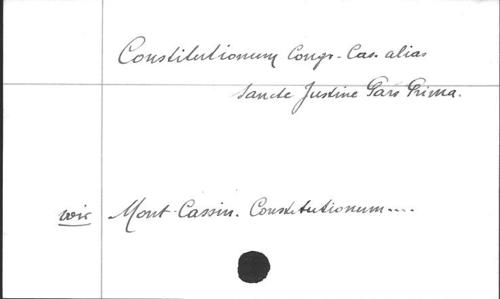 Constitutionum Congr. Cas. alias
Sancte Justine Pars Prima.
voir Mont-Cassin. Constitutionum....